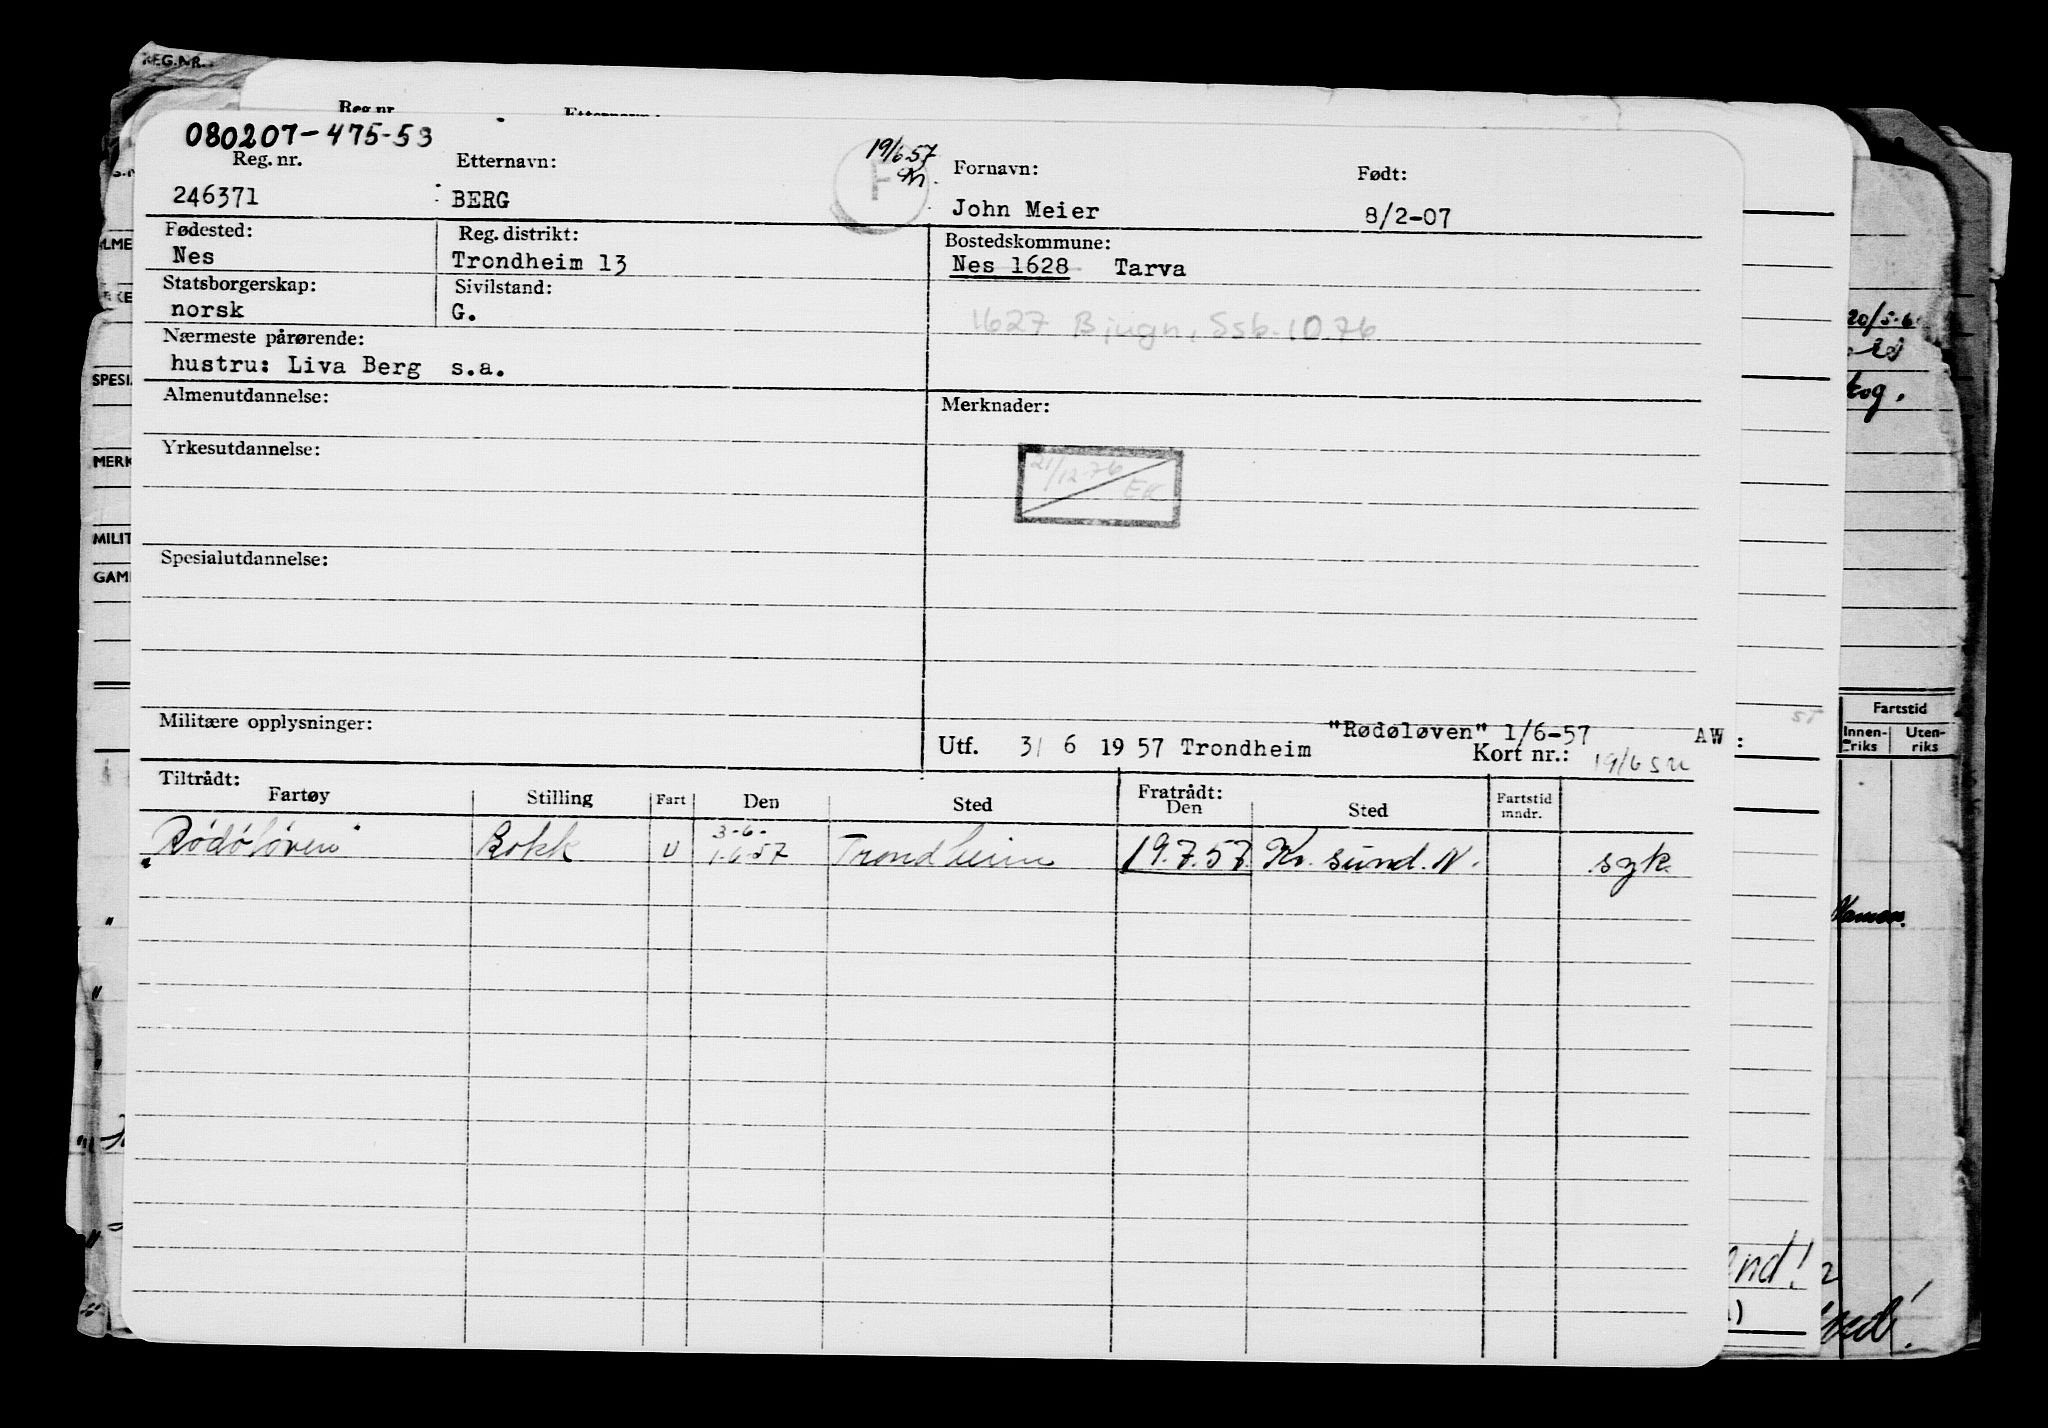 REG.NR.
Reg.nr. Etternavn:
080207-475-53
Reg. nr. Etternavn: 19/6 57 Fornavn: Født:
F
246371 BERG John Meier 8/2-07
Fødested: Reg. distrikt: Bostedskommune:
Nes Trondheim 13 Nes 1628 Tarva
Statsborgerskap: Sivilstand:
norsk G.
1627 Bjugn, Ssb. 10.76
Nærmeste pårørende:
hustru: Liva Berg s.a.
Almenutdannelse: Merknader:
Yrkesutdannelse:
21/12-76 EK
Spesialutdannelse:
Militære opplysninger:
"Rødøløven" 1/6-57 AW:
Utf. 3/ 6 19 57 Trondheim Kort nr.: 19/6 su
Tiltrådt: Fratrådt:
Fartøy Stilling Fart Den Sted Den Sted Fartstid mndr.
3-6-
"Rødøløven" Bokk U 1.6.57 Trondheim 19.7.57. Kr. sund. N. syk
SPESI
MERK
MILIT
GAM
20/5-6
kog.
Fartstid
Innen-riks Uten-riks